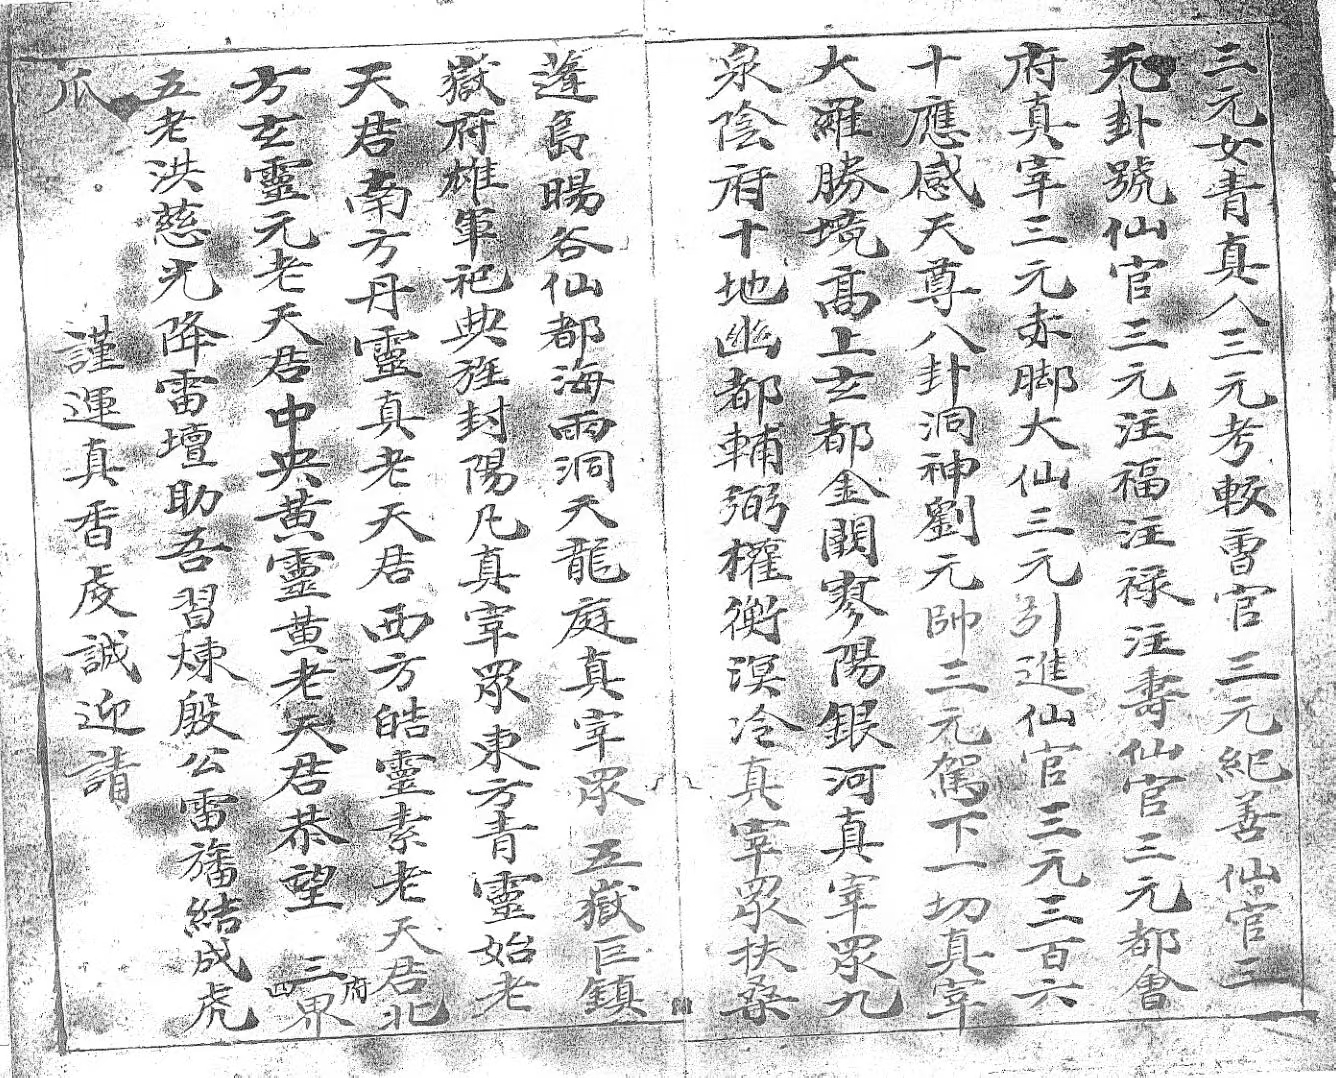 三元女青真人三元考較曹官三元紀善仙官三
元卦號仙官三元注福注祿注壽仙官三元都會
府真宰三元赤脚大仙三元引進仙官三元三百六
十應感天尊八卦洞神劉元帥三元駕下一切真宰
大羅勝境高上玄都金闕寥陽銀河真宰眾九
泉陰府十地幽都輔弼權衡溟冷真宰眾扶桑
蓬島暘谷仙都海雨洞天龍庭真宰眾 五嶽巨鎮
嶽府雄軍祀典旌封陽凡真宰眾東方青靈始老
天君南方丹靈真老天君西方皓靈素老天君北
方玄靈元老天君中央黃靈黃老天君恭望 三界
附
四
五老洪慈光降雷壇助吾習煉殷公雷旛結成虎
爪
謹運真香虔誠迎請